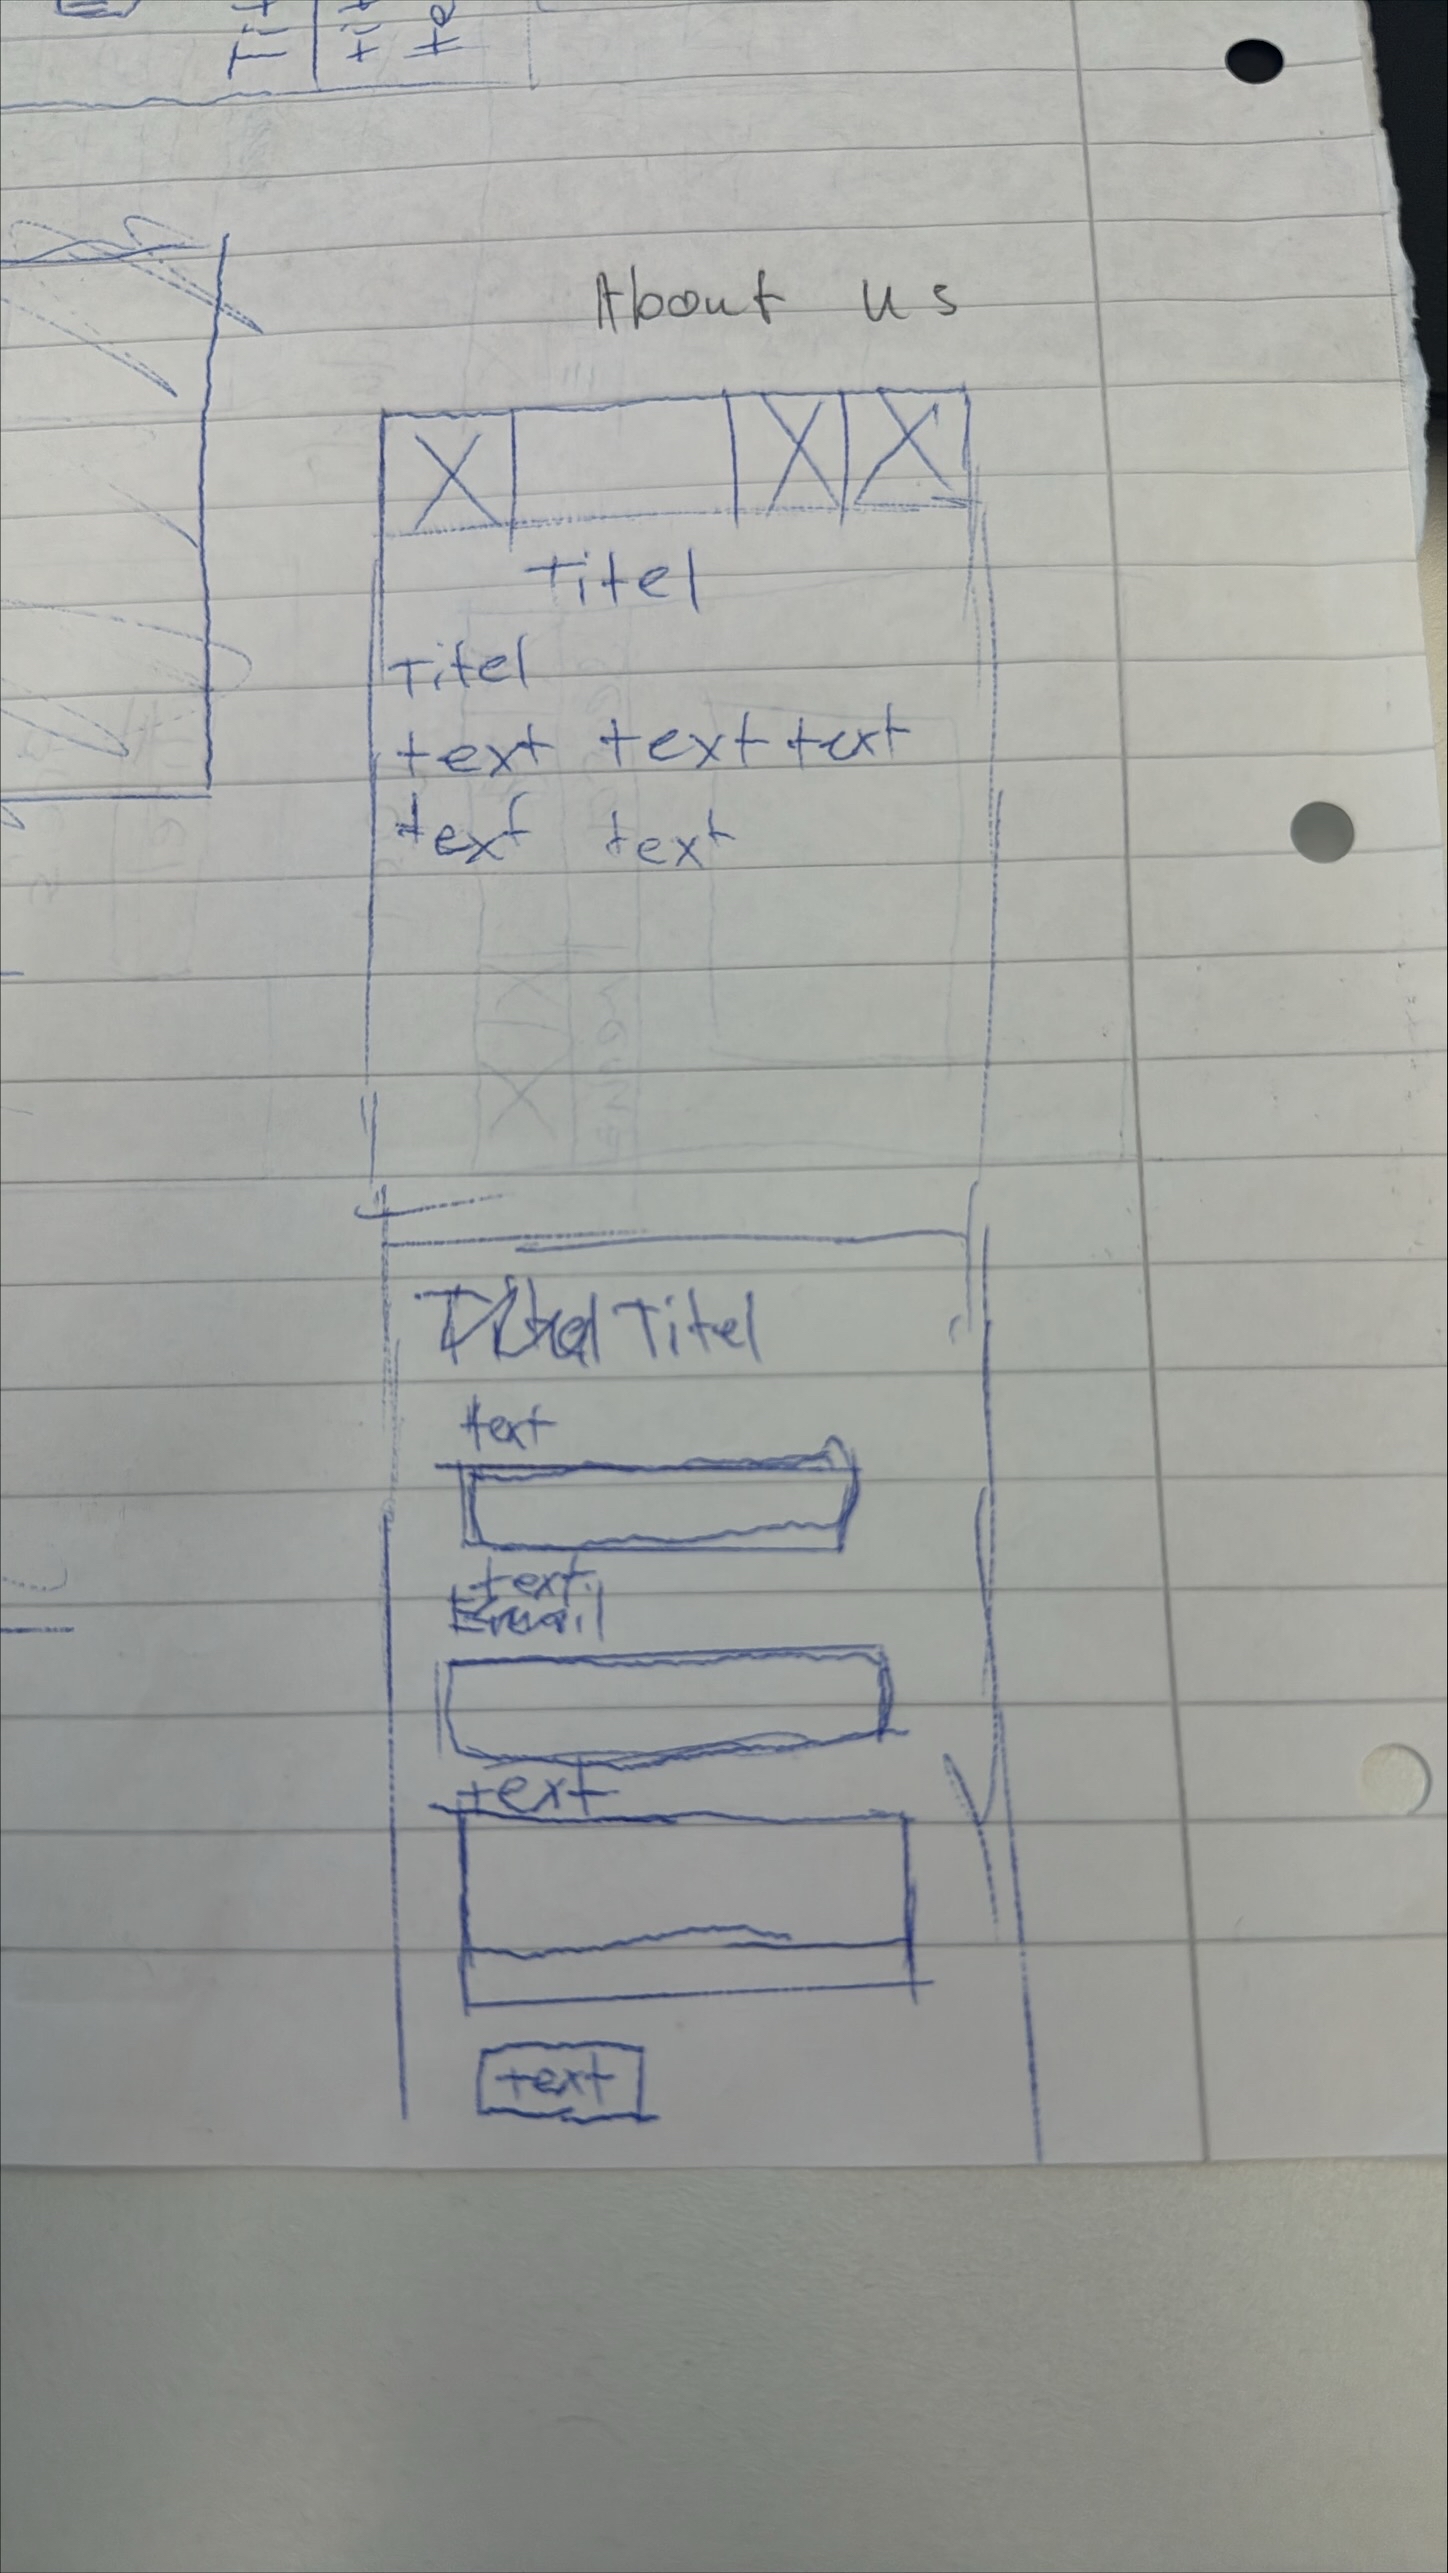 About us
Titel
Titel
text text text
text text
Titel
text
text
Email
text
text